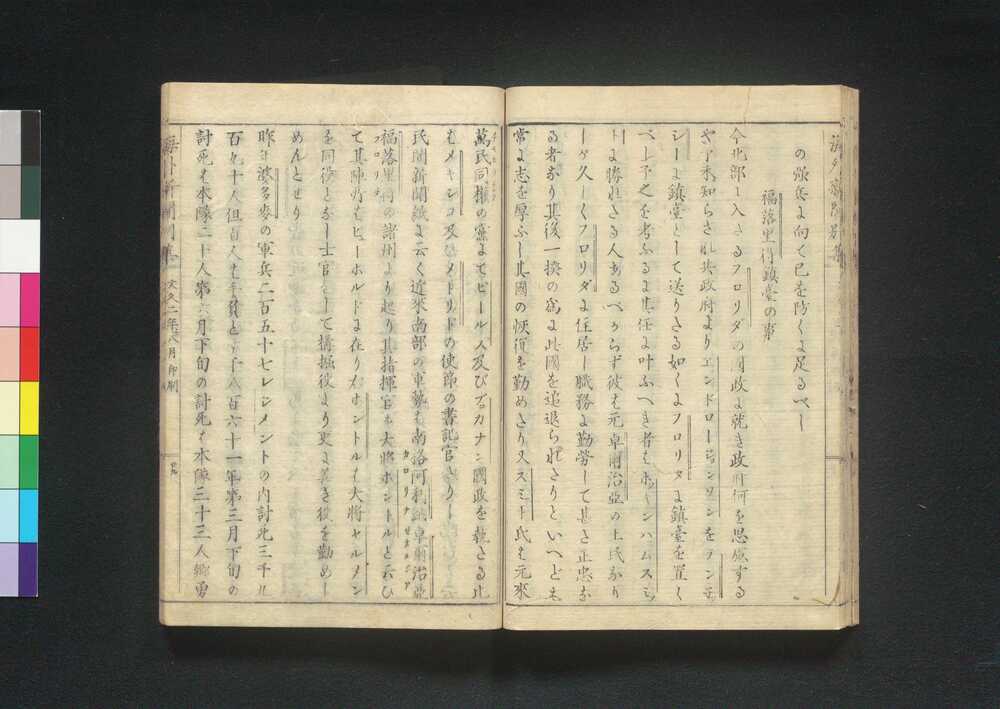 の強兵に向て己を防くに足るべし
福落里得鎮臺の事
今北部に入さるフロリダの国政に就き政府何を思慮する
や予未知らされ共政府よりエンドロージヨンソンをテンネ
シーに鎮臺として送りさる如くにフロリタに鎮臺を置く
べし予之を考ふるに其任に叶ふへき者はホーンハムスミ
トに勝れさる人あるべからず彼は元卓爾治亞の土民なり
しが久しくフロリダに住居し職務に勤労して甚さ正忠な
る者なり其後一揆の為に此國を追退られさりといへども
常に志を厚ふし其國の恢復を勤めさり又スミト氏は元來
萬民同權の黨にてピール人及びブカナン國政を執さる比
はメキシコ及びメトリドの使節の書記官さりし
民間新聞紙に云く近來南部の軍勢は南洛河利 卓爾治亞
カロリナ
福落里得の諸州より起り其指揮官は大將ホントルと云ひ
フロリダ
て其陣所はヒーホルドに在り右ホントルは大將ヤルメン
を同役となし士官をして溝掘役より更に善き役を勤めし
めんとせり
昨年婆多麥の軍兵二百五十七レシメントの内討死三千九
百九十人但百人は手負となり千八百六十一年第三月下旬の
討死は本隊二十人第六月下旬の討死は本隊三十三人郷勇
海外新聞別集
文久二年八月印刷